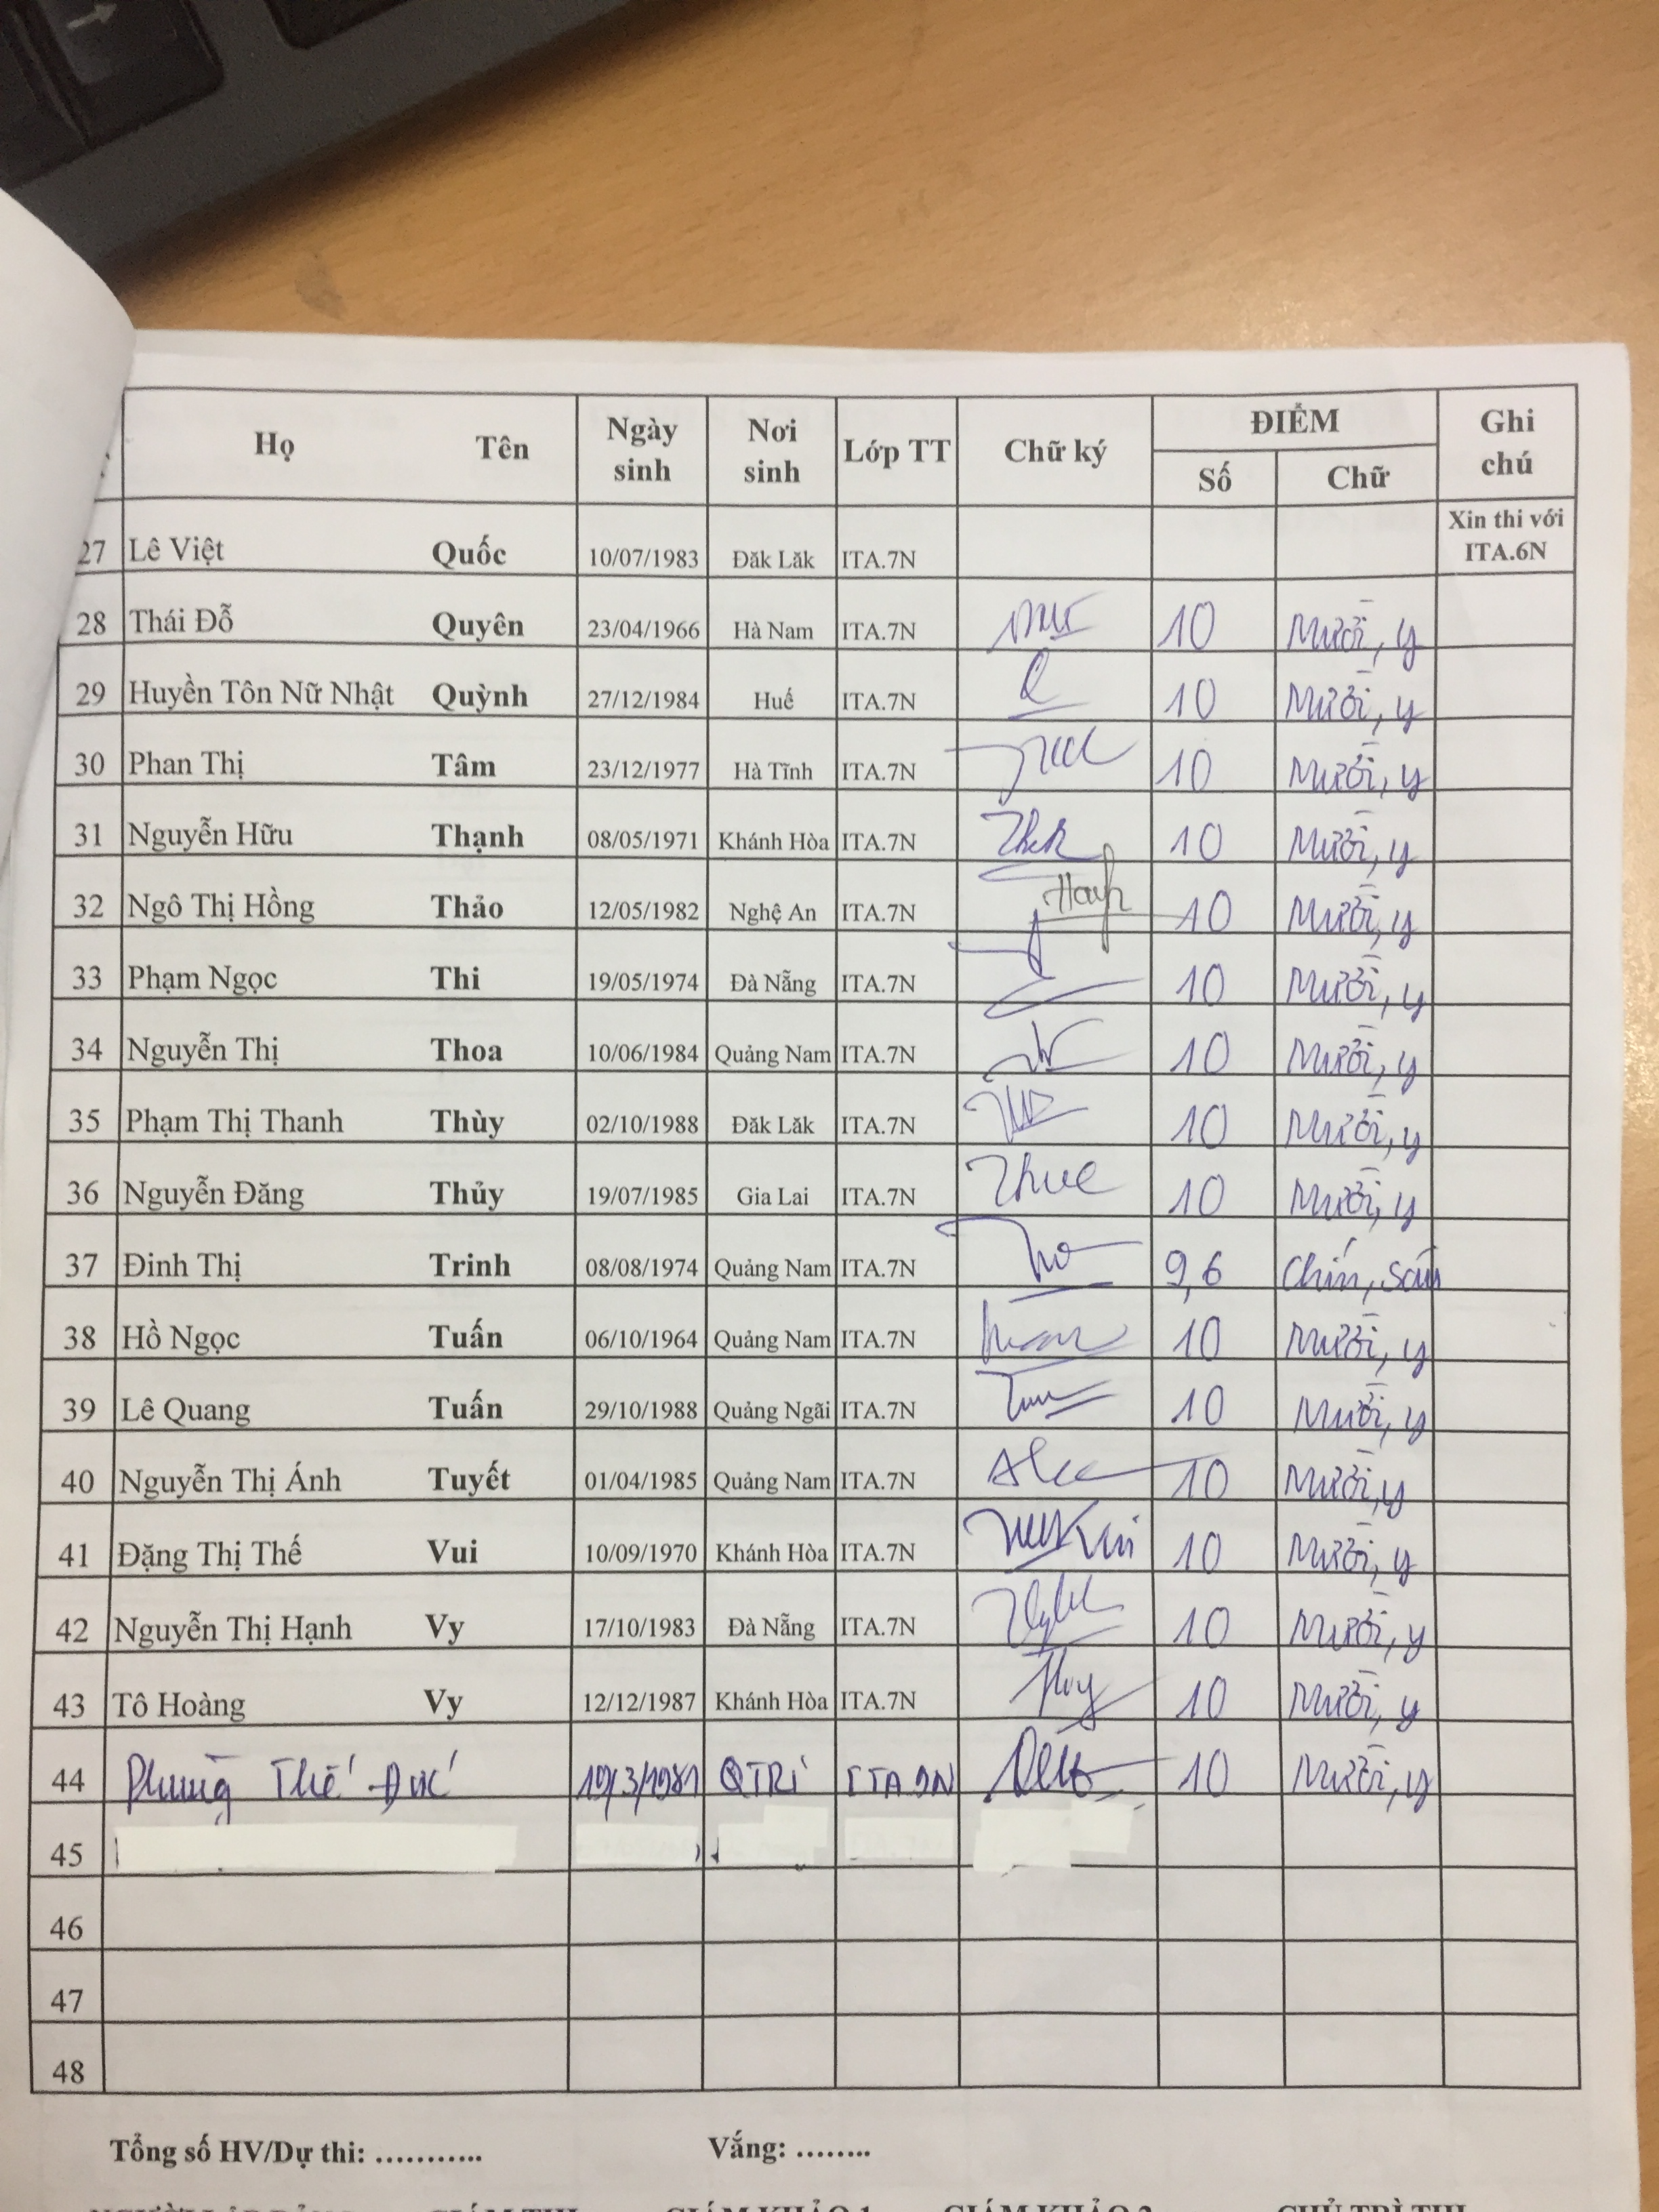 Họ Tên Ngày sinh Nơi sinh Lớp TT Chữ ký ĐIỂM Số Chữ Ghi chú
27 Lê Việt Quốc 10/07/1983 Đăk Lăk ITA.7N Xin thi với ITA.6N
28 Thái Đỗ Quyên 23/04/1966 Hà Nam ITA.7N 10 Mười, y
29 Huyền Tôn Nữ Nhật Quỳnh 27/12/1984 Huế ITA.7N 10 Mười, y
30 Phan Thị Tâm 23/12/1977 Hà Tĩnh ITA.7N 10 Mười, y
31 Nguyễn Hữu Thạnh 08/05/1971 Khánh Hòa ITA.7N 10 Mười, y
32 Ngô Thị Hồng Thảo 12/05/1982 Nghệ An ITA.7N 10 Mười, y
33 Phạm Ngọc Thi 19/05/1974 Đà Nẵng ITA.7N 10 Mười, y
34 Nguyễn Thị Thoa 10/06/1984 Quảng Nam ITA.7N 10 Mười, y
35 Phạm Thị Thanh Thùy 02/10/1988 Đăk Lăk ITA.7N 10 Mười, y
36 Nguyễn Đăng Thủy 19/07/1985 Gia Lai ITA.7N 10 Mười, y
37 Đinh Thị Trinh 08/08/1974 Quảng Nam ITA.7N 9,6 Chín, sáu
38 Hồ Ngọc Tuấn 06/10/1964 Quảng Nam ITA.7N 10 Mười, y
39 Lê Quang Tuấn 29/10/1988 Quảng Ngãi ITA.7N 10 Mười, y
40 Nguyễn Thị Ánh Tuyết 01/04/1985 Quảng Nam ITA.7N 10 Mười, y
41 Đặng Thị Thế Vui 10/09/1970 Khánh Hòa ITA.7N Vui 10 Mười, y
42 Nguyễn Thị Hạnh Vy 17/10/1983 Đà Nẵng ITA.7N 10 Mười, y
43 Tô Hoàng Vy 12/12/1987 Khánh Hòa ITA.7N 10 Mười, y
44 Phùng Thế Đức QTRỊ 10 Mười, y
45
46
47
48
Tổng số HV/Dự thi: ........... Vắng: ........